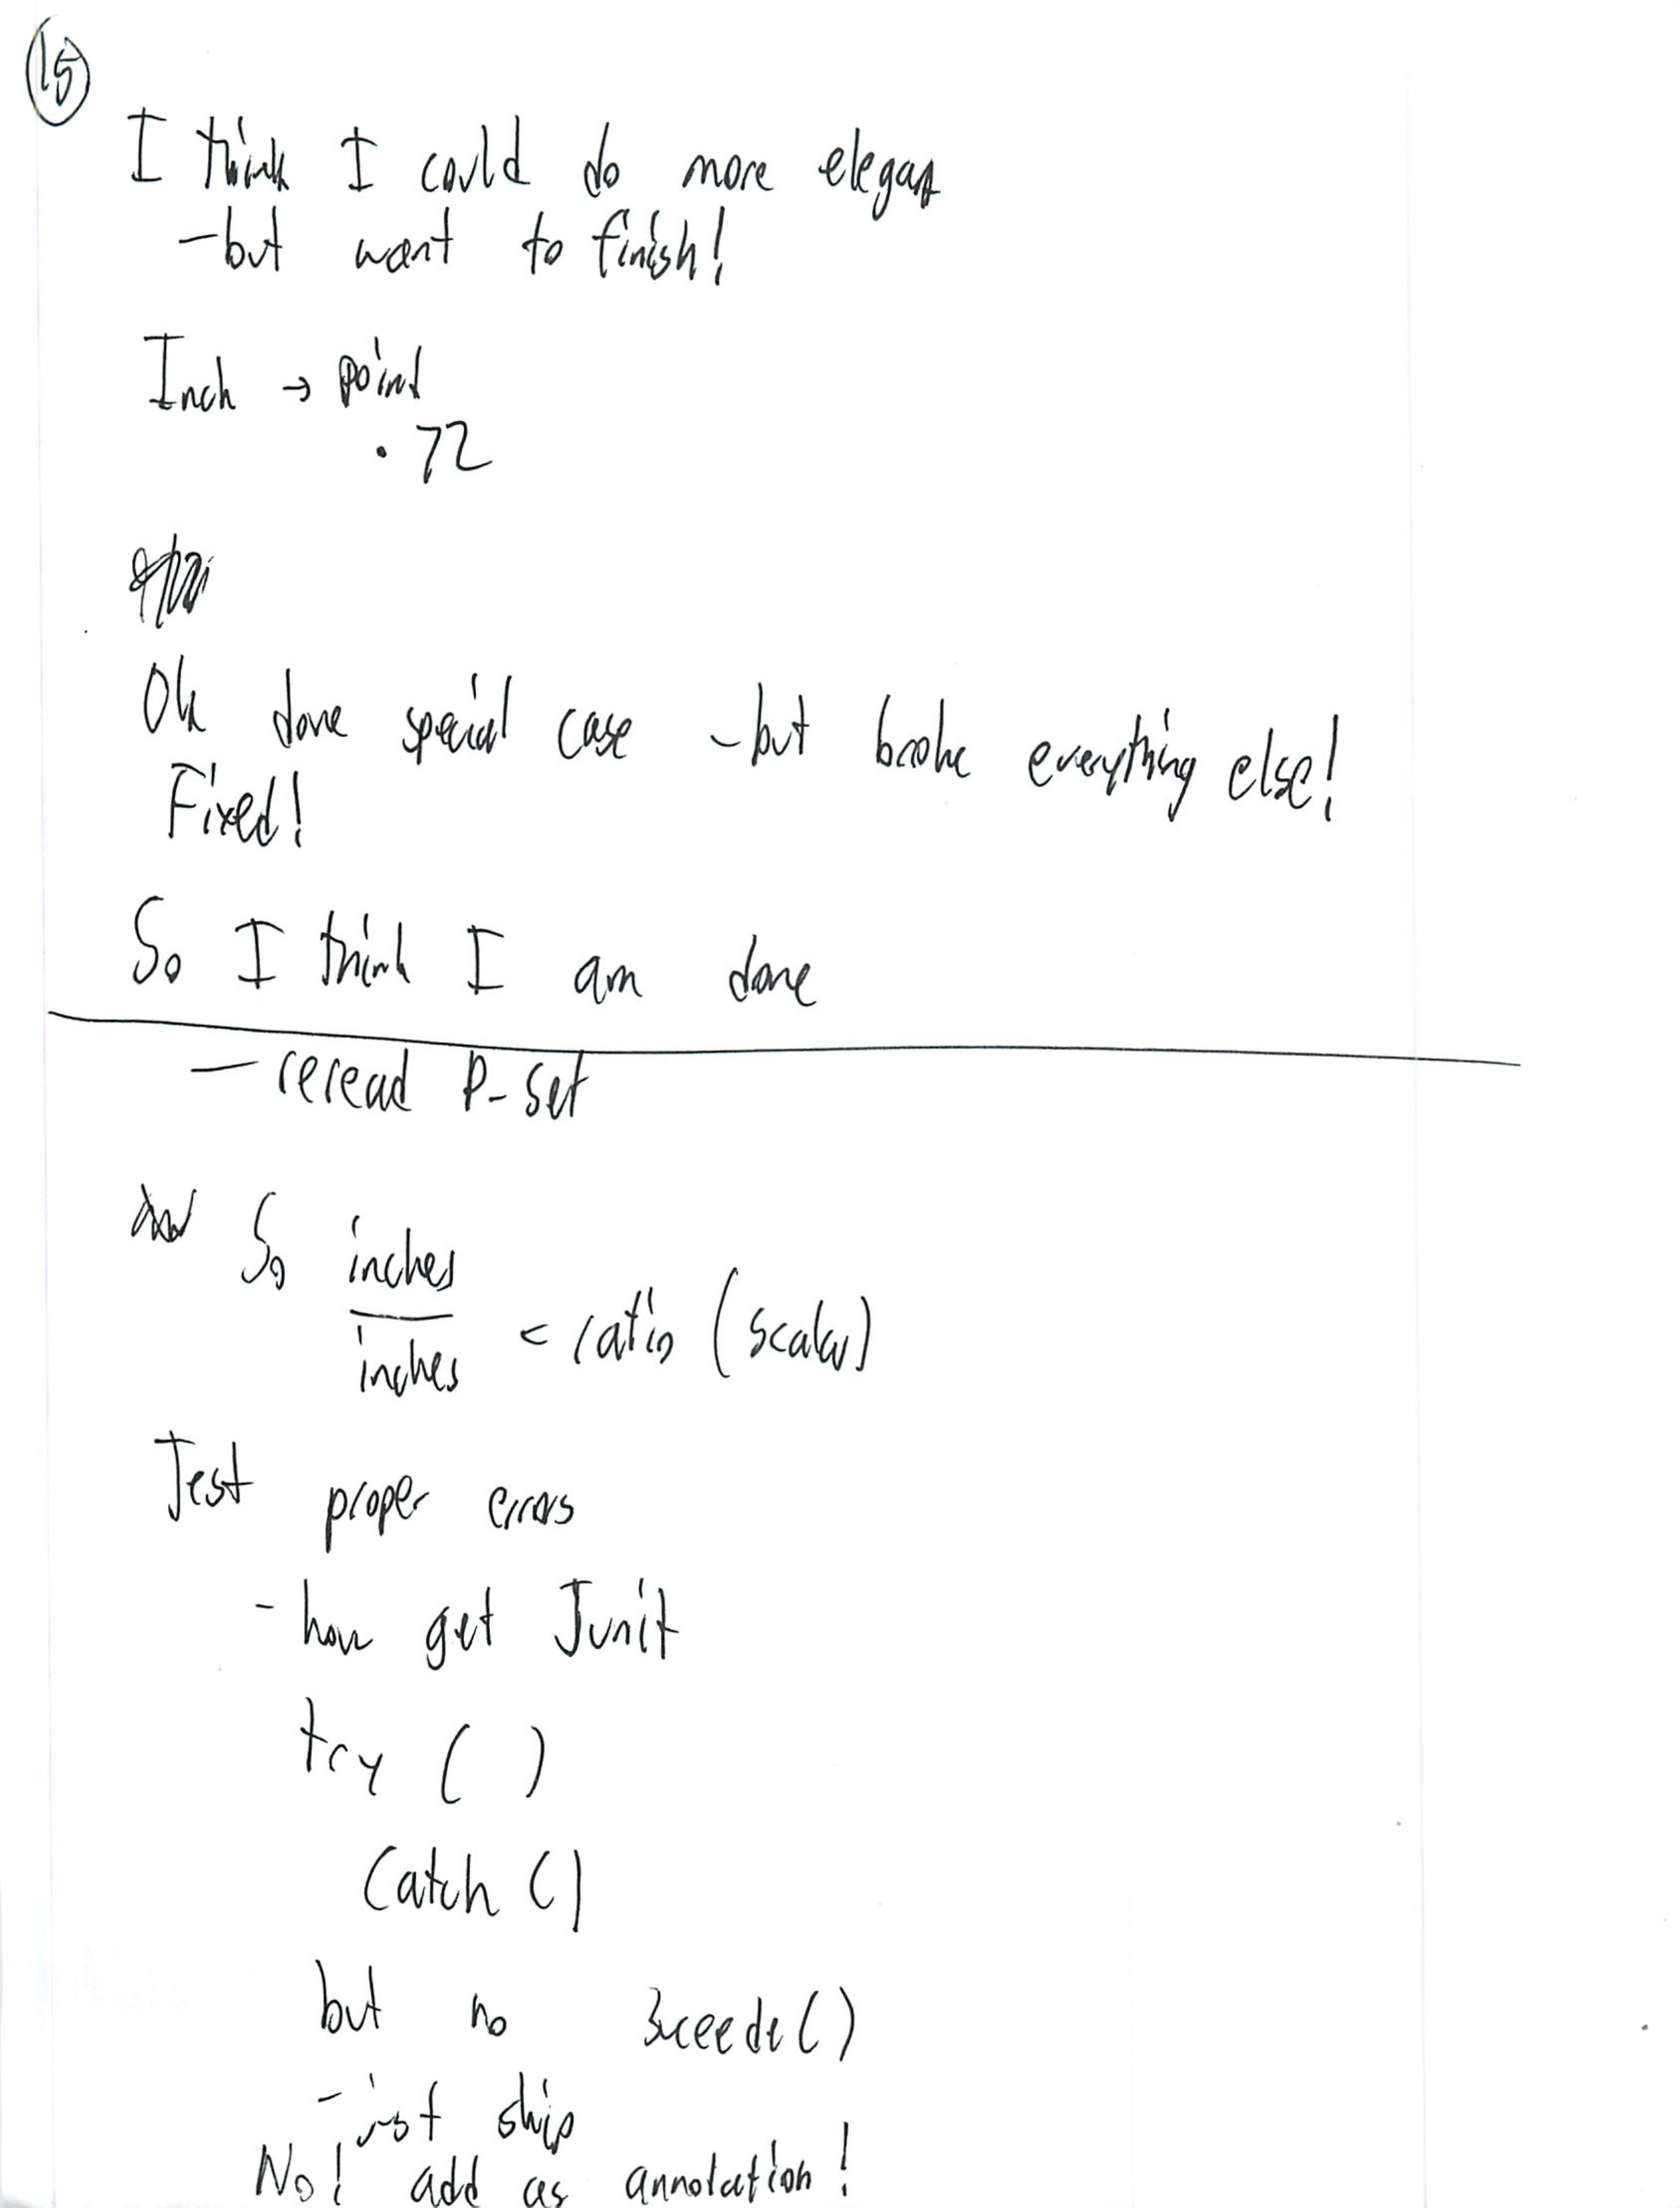 15
I think I could do more elegant
- but want to finish!
Inch → point
· 72
Ok done special case - but broke everything else!
Fixed!
So I think I am done
- reread P-set
So inches
inches = ratio (scalar)
Test proper errors
- how get Junit
try ( )
catch ( )
but no succeede()
- just
No! add as annotation!